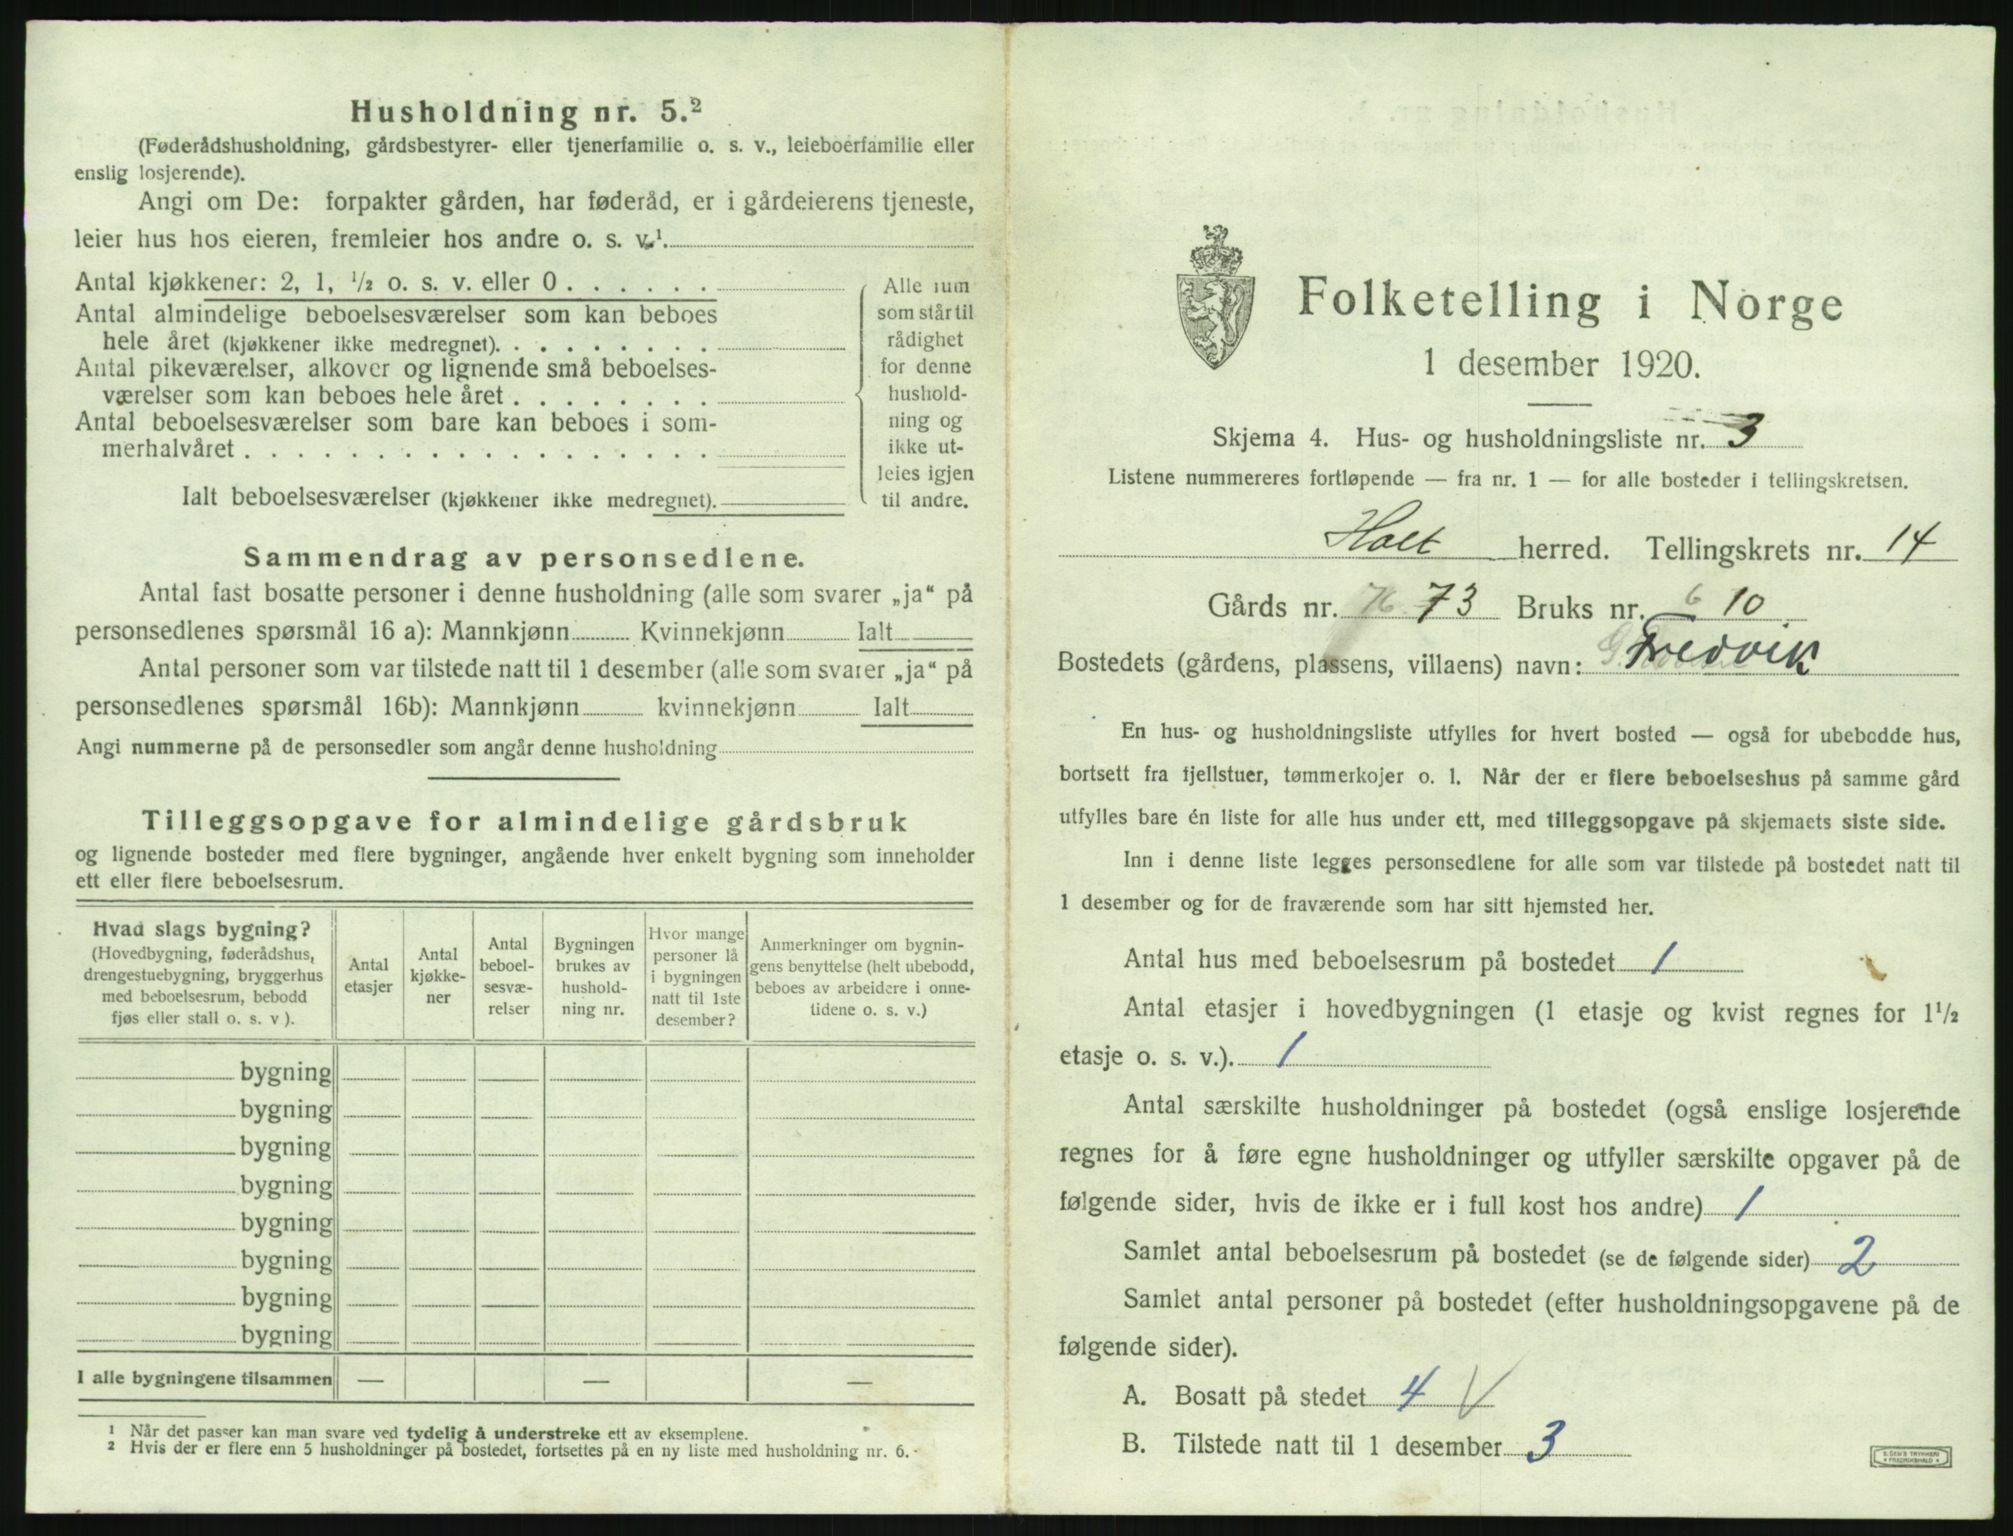 Husholdning nr. 5.²
(Føderådshusholdning, gårdsbestyrer- eller tjenerfamilie o. s. v., leieboerfamilie eller
enslig losjerende).
Angi om De: forpakter gården, har føderåd, er i gårdeierens tjeneste,
leier hus hos eieren, fremleier hos andre o. s. v.¹.
Antal kjøkkener: 2, 1, ½ o. s. v. eller 0 . . . . . .
Antal almindelige beboelsesværelser som kan beboes
hele året (kjøkkener ikke medregnet). . . . . . . . .
Antal pikeværelser, alkover og lignende små beboelses-
værelser som kan beboes hele året . . . . . . . .
Antal beboelsesværelser som bare kan beboes i som-
merhalvåret . . . . . . . . . . . . . . . . . .
Ialt beboelsesværelser (kjøkkener ikke medregnet).
Alle rum
som står til
rådighet
for denne
hushold-
ning og
ikke ut-
leies igjen
til andre.
Sammendrag av personsedlene.
Antal fast bosatte personer i denne husholdning (alle som svarer „ja“ på
personsedlenes spørsmål 16 a): Mannkjønn Kvinnekjønn Ialt
Antal personer som var tilstede natt til 1 desember (alle som svarer „ja“ på
personsedlenes spørsmål 16b): Mannkjønn kvinnekjønn Ialt
Angi nummerne på de personsedler som angår denne husholdning
Tilleggsopgave for almindelige gårdsbruk
og lignende bosteder med flere bygninger, angående hver enkelt bygning som inneholder
ett eller flere beboelsesrum.
Hvad slags bygning?
(Hovedbygning, føderådshus,
drengestuebygning, bryggerhus
med beboelsesrum, bebodd
fjøs eller stall o. s. v ).
Antal
etasjer
Antal
kjøkke-
ner
Antal
beboel-
sesvæ-
relser
Bygningen
brukes av
hushold-
ning nr.
Hvor mange
personer lå
i bygningen
natt til 1ste
desember?
Anmerkninger om bygnin-
gens benyttelse (helt ubebodd,
beboes av arbeidere i onne-
tidene o. s. v.)
bygning
bygning
bygning
bygning
bygning
bygning
bygning
bygning
I alle bygningene tilsammen — — —
¹ Når det passer kan man svare ved tydelig å understreke ett av eksemplene.
² Hvis der er flere enn 5 husholdninger på bostedet, fortsettes på en ny liste med husholdning nr. 6.
Folketelling i Norge
1 desember 1920.
Skjema 4. Hus- og husholdningsliste nr. 3
Listene nummereres fortløpende — fra nr. 1 — for alle bosteder i tellingskretsen.
Holt herred. Tellingskrets nr. 14
Gårds nr. 76 73 Bruks nr. 6 10
Bostedets (gårdens, plassens, villaens) navn: Fredvik
En hus- og husholdningsliste utfylles for hvert bosted — også for ubebodde hus,
bortsett fra fjellstuer, tømmerkojer o. l. Når der er flere beboelseshus på samme gård
utfylles bare én liste for alle hus under ett, med tilleggsopgave på skjemaets siste side.
Inn i denne liste legges personsedlene for alle som var tilstede på bostedet natt til
1 desember og for de fraværende som har sitt hjemsted her.
Antal hus med beboelsesrum på bostedet 1
Antal etasjer i hovedbygningen (1 etasje og kvist regnes for 1½
etasje o. s. v.). 1
Antal særskilte husholdninger på bostedet (også enslige losjerende
regnes for å føre egne husholdninger og utfyller særskilte opgaver på de
følgende sider, hvis de ikke er i full kost hos andre) 1
Samlet antal beboelsesrum på bostedet (se de følgende sider) 2
Samlet antal personer på bostedet (efter husholdningsopgavene på de
følgende sider).
A. Bosatt på stedet 4 V
B. Tilstede natt til 1 desember 3